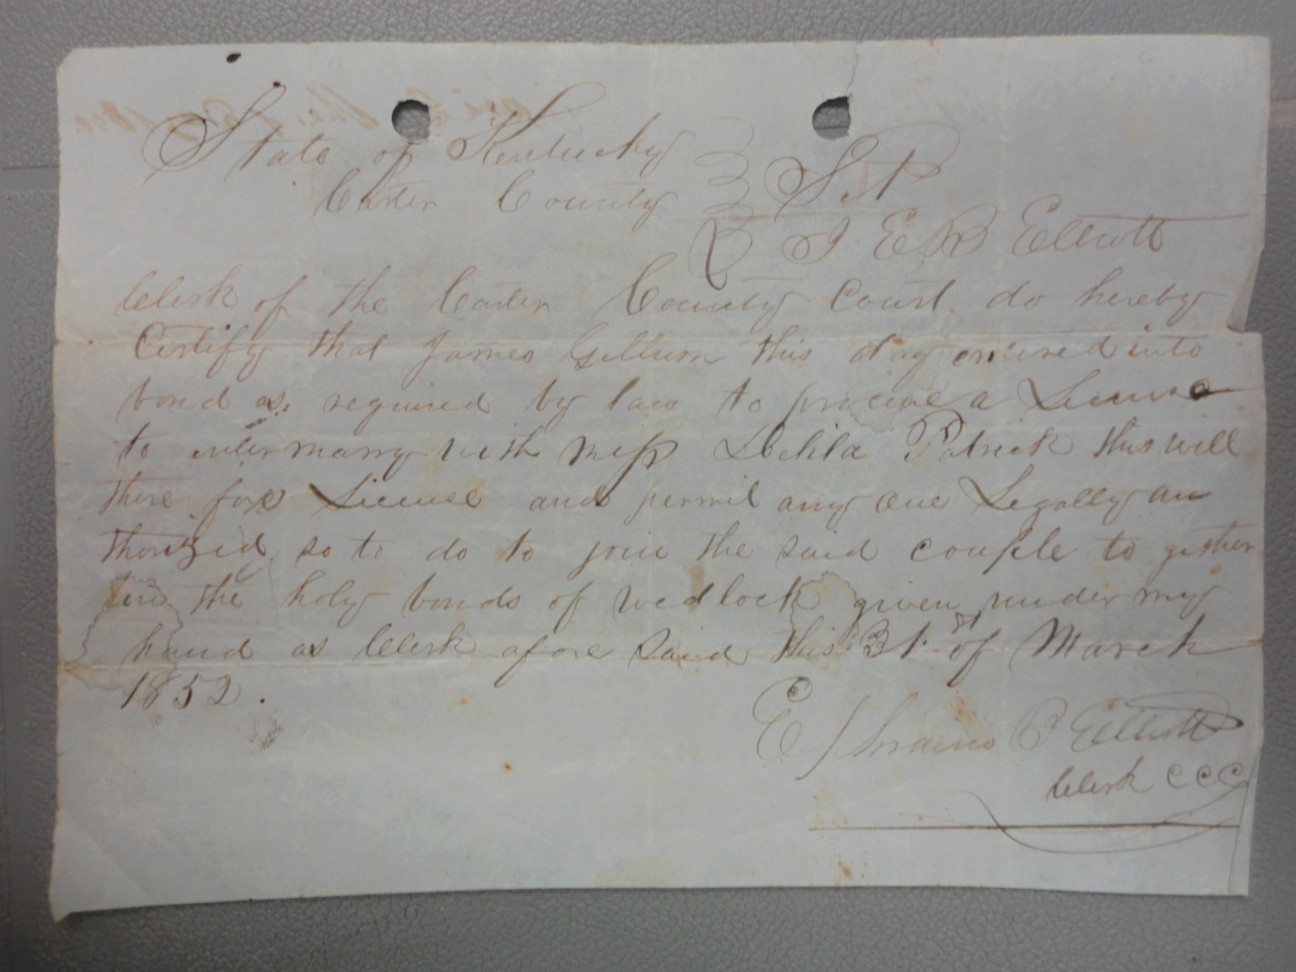 State of Kentucky
Carter County } Sct
I E B Elliott
Clerk of the Carter County Court do hereby
Certify that James Gillum this day entered into
bond as required by law to procure a License
to intermarry with Miss Delila Patrick this will
there fore License and permit any one Legally au
thorized so to do to join the said couple to gether
in the holy bonds of wedlock given under my
hand as Clerk afore said this 31st of March
1852.
E B Elliott
Clerk C C C